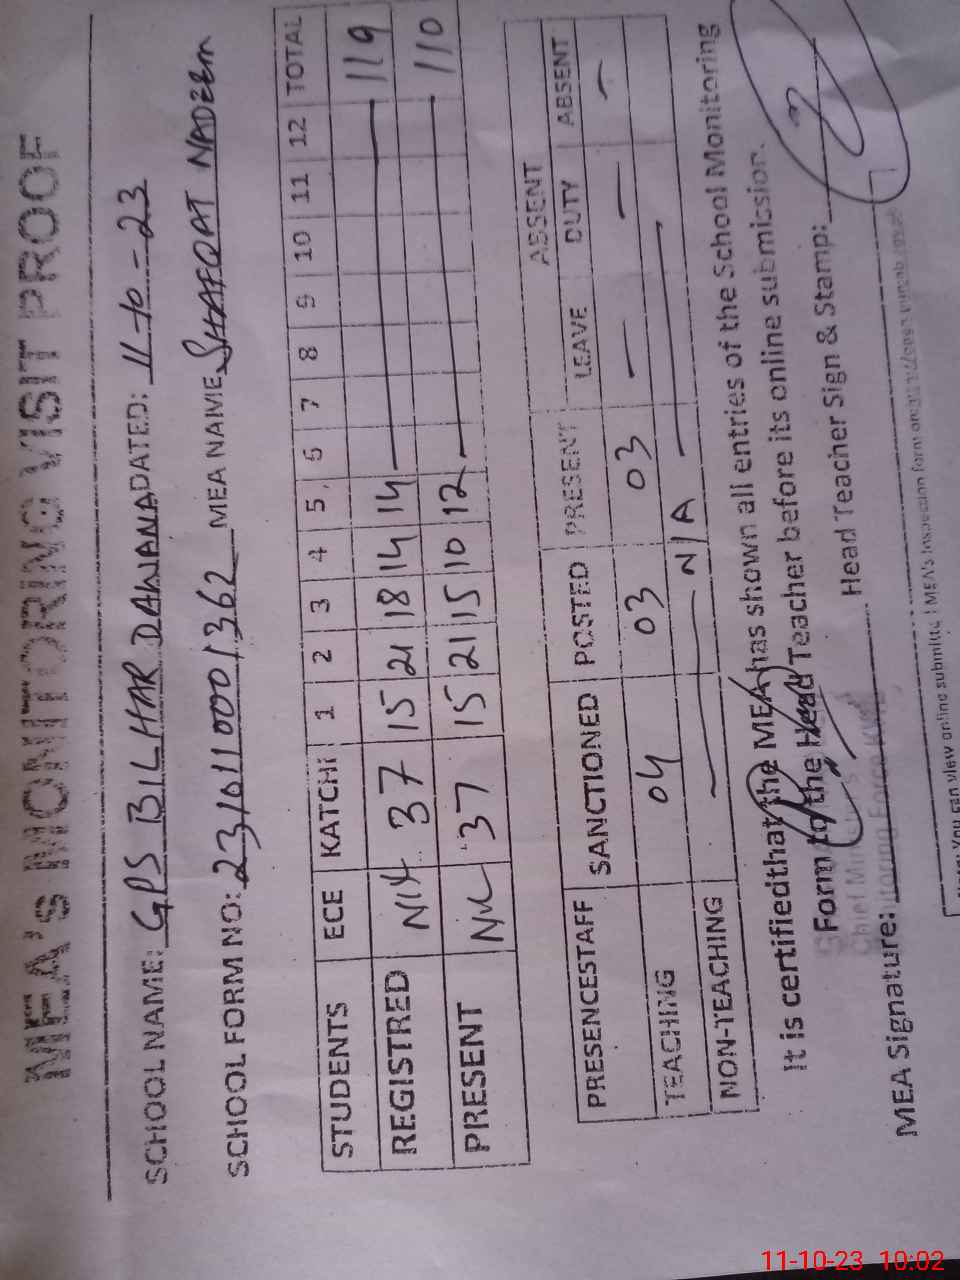 MEA's MONITORING VISIT PROOF
SCHOOL NAME: GPS BILHAR DAWANA DATED: 11-10-23
SCHOOL FORM NO: 23101100013 62 MEA NAME SHAFQAT NADEEM
STUDENTS ECE KATCHI 1 2 3 4 5 6 7 8 9 10 11 12 TOTAL
REGISTRED Nil 37 15 21 18 14 14 — 119
PRESENT NIL 37 15 21 15 10 12 — 110
ABSENT
PRESENCESTAFF SANCTIONED POSTED PRESENT LEAVE DUTY ABSENT
TEACHING 04 03 03 — — —
NON-TEACHING — N/A —
It is certifiedthat the MEA has shown all entries of the School Monitoring
Form to the Head Teacher before its online submission.
MEA Signature: Head Teacher Sign & Stamp:
You can view online submitte MEA's Inspection form on
11-10-23 10:02